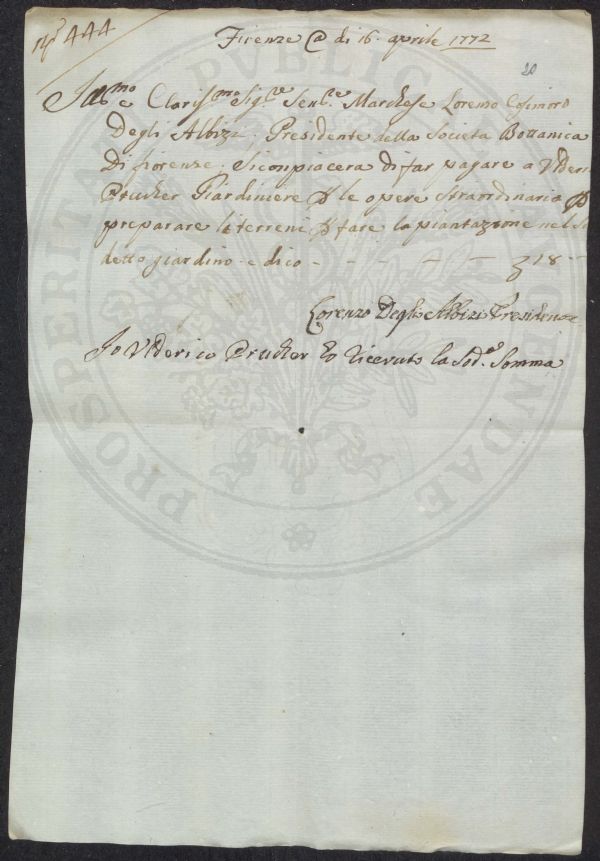 N.° 444
Firenze @ di 16. aprile 1772
20
Ill.mo e Clariss.mo Sig.re Sen.re Marchese Lorenzo Cosimo
Degli Albizi. Presidente della Societa Bottanica
Di fiorenze. Siconpiacera di far pagare a Vderi
Prucker Giardiniere p le opere straordinarie p
preparare li terreni p fare la piantazione nel su
detto giardino - e dico - - - - - - 18 --
Lorenzo Degli Albizi Presidente
Io Vderico Prucker ho Ricevuto la Sod.a Somma
PROSPERITATI PUBLICAE